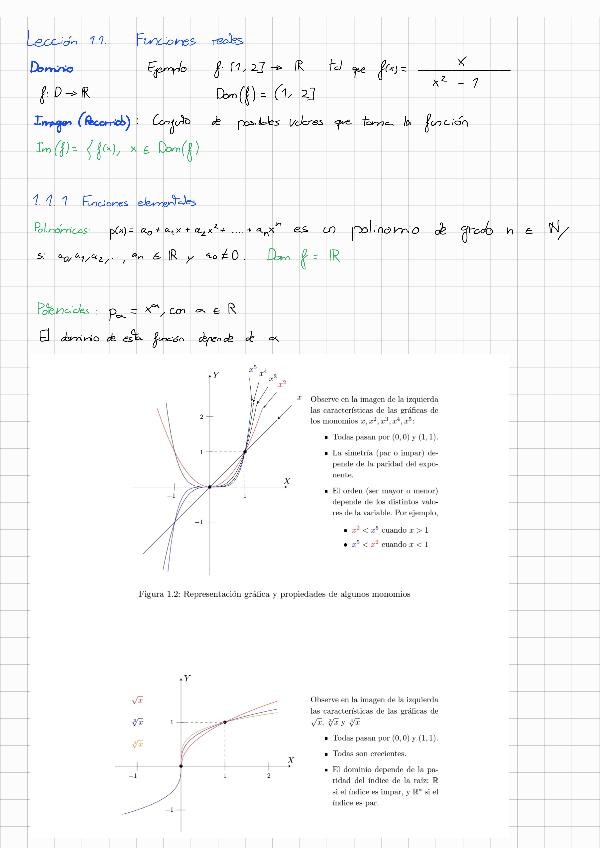 Lección 1.1. Funciones reales
Dominio Ejemplo f: [1, 2] → ℝ tal que f(x) = x / (x² - 1)
f: D → ℝ Dom(f) = (1, 2]
Imagen (Recorrido): Conjunto de posibles valores que toma la función
Im(f) = { f(x), x ∈ Dom(f)
1.1.1 Funciones elementales
Polinómicas: p(x) = a₀ + a₁x + a₂x² + .... + aₙxⁿ es un polinomio de grado n ∈ ℕ/
si a₀, a₁, a₂, .., aₙ ∈ ℝ y a₀ ≠ 0. Dom f = ℝ
Potenciales: pα = xᵅ, con α ∈ ℝ
El dominio de esta función depende de α
Y
x⁵ x⁴ x³ x² x
2
1
-1 1 X
-1
Observe en la imagen de la izquierda
las características de las gráficas de
los monomios x, x², x³, x⁴, x⁵:
▪ Todas pasan por (0, 0) y (1, 1).
▪ La simetría (par o impar) de-
pende de la paridad del expo-
nente.
▪ El orden (ser mayor o menor)
depende de los distintos valo-
res de la variable. Por ejemplo,
• x² < x⁵ cuando x > 1
• x⁵ < x² cuando x < 1
Figura 1.2: Representación gráfica y propiedades de algunos monomios
Y
1
-1 1 2 X
-1
Observe en la imagen de la izquierda
las características de las gráficas de
▪ Todas pasan por (0, 0) y (1, 1).
▪ Todas son crecientes.
▪ El dominio depende de la pa-
ridad del índice de la raíz: ℝ
si el índice es impar, y ℝ⁺ si el
índice es par.